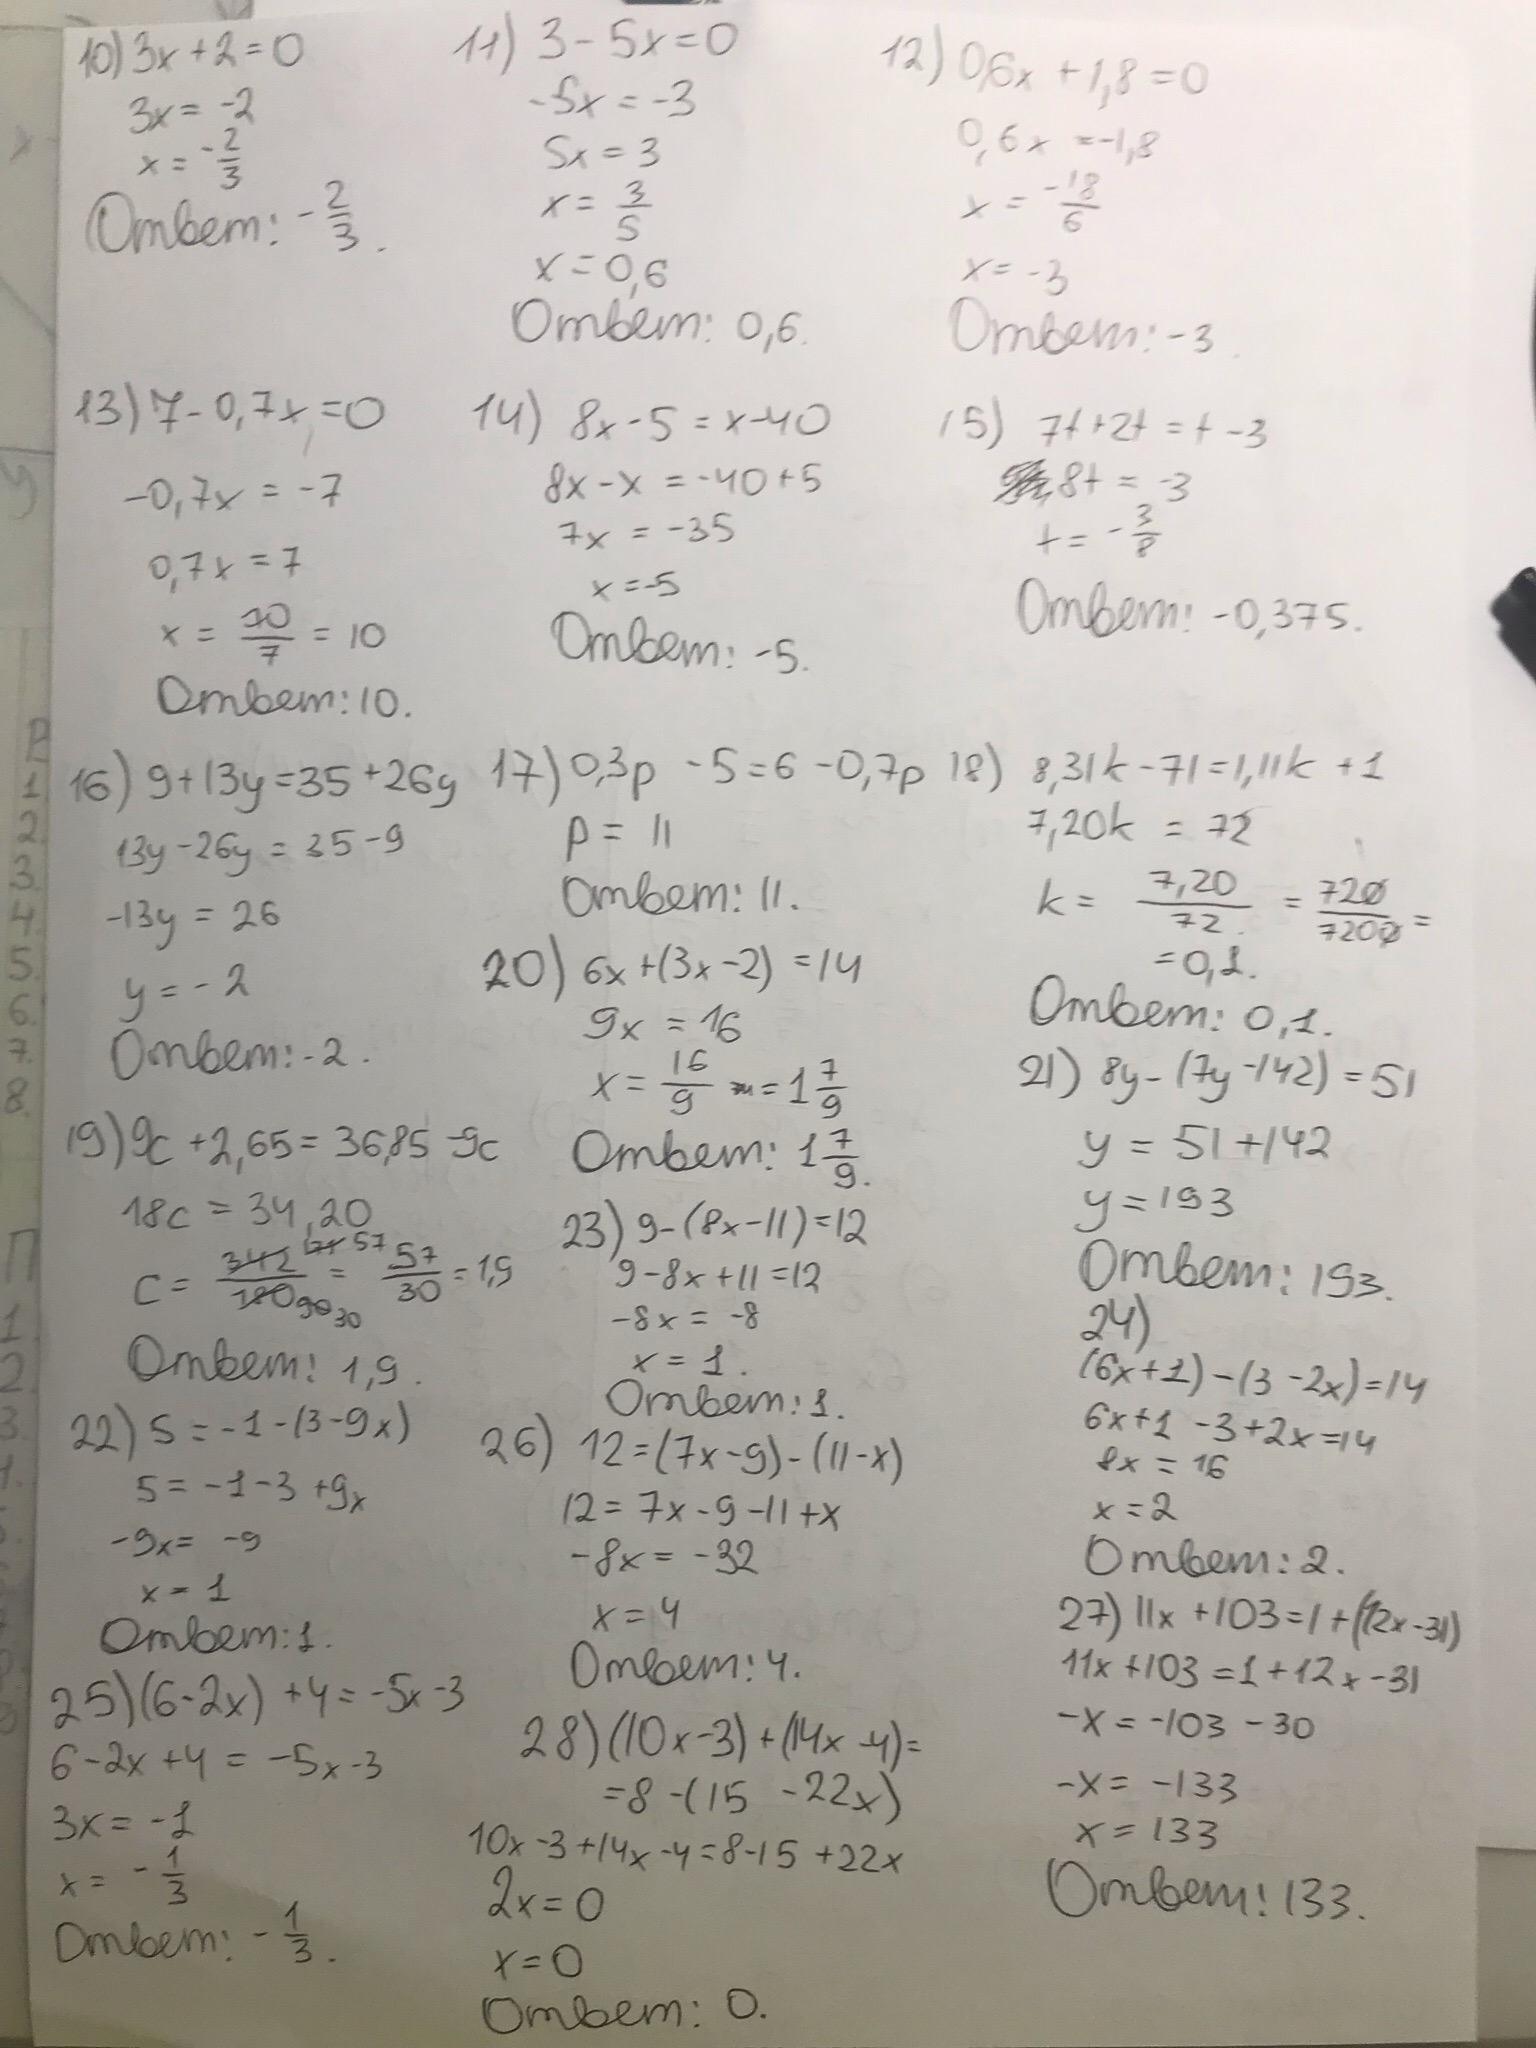 10) 3x + 2 = 0
3x = -2
x = -2/3
Ответ: -2/3.
11) 3 - 5x = 0
-5x = -3
5x = 3
x = 3/5
x = 0,6
Ответ: 0,6.
12) 0,6x + 1,8 = 0
0,6x = -1,8
x = -18/6
x = -3
Ответ: -3.
13) 7 - 0,7x = 0
-0,7x = -7
0,7x = 7
x = 70/7 = 10
Ответ: 10.
14) 8x - 5 = x - 40
8x - x = -40 + 5
7x = -35
x = -5
Ответ: -5.
15) 7t + 2t = t - 3
8t = -3
t = -3/8
Ответ: -0,375.
16) 9 + 13y = 35 + 26y
13y - 26y = 35 - 9
-13y = 26
y = -2
Ответ: -2.
17) 0,3p - 5 = 6 - 0,7p
p = 11
Ответ: 11.
18) 8,31k - 71 = 1,11k + 1
7,20k = 72
k = 7,20/72 = 720/7200 =
= 0,1.
Ответ: 0,1.
19) 9c + 2,65 = 36,85 - 9c
18c = 34,20
c = 342/180 = 57/30 = 1,9
171 57
90 30
Ответ: 1,9.
20) 6x + (3x - 2) = 14
9x = 16
x = 16/9 = 1 7/9
Ответ: 1 7/9.
21) 8y - (7y - 142) = 51
y = 51 + 142
y = 193
Ответ: 193.
22) 5 = -1 - (3 - 9x)
5 = -1 - 3 + 9x
-9x = -9
x = 1
Ответ: 1.
23) 9 - (8x - 11) = 12
9 - 8x + 11 = 12
-8x = -8
x = 1.
Ответ: 1.
24)
(6x + 1) - (3 - 2x) = 14
6x + 1 - 3 + 2x = 14
8x = 16
x = 2
Ответ: 2.
25) (6 - 2x) + 4 = -5x - 3
6 - 2x + 4 = -5x - 3
3x = -1
x = -1/3
Ответ: -1/3.
26) 12 = (7x - 9) - (11 - x)
12 = 7x - 9 - 11 + x
-8x = -32
x = 4
Ответ: 4.
27) 11x + 103 = 1 + (12x - 31)
11x + 103 = 1 + 12x - 31
-x = -103 - 30
-x = -133
x = 133
Ответ: 133.
28) (10x - 3) + (14x - 4) =
= 8 - (15 - 22x)
10x - 3 + 14x - 4 = 8 - 15 + 22x
2x = 0
x = 0
Ответ: 0.